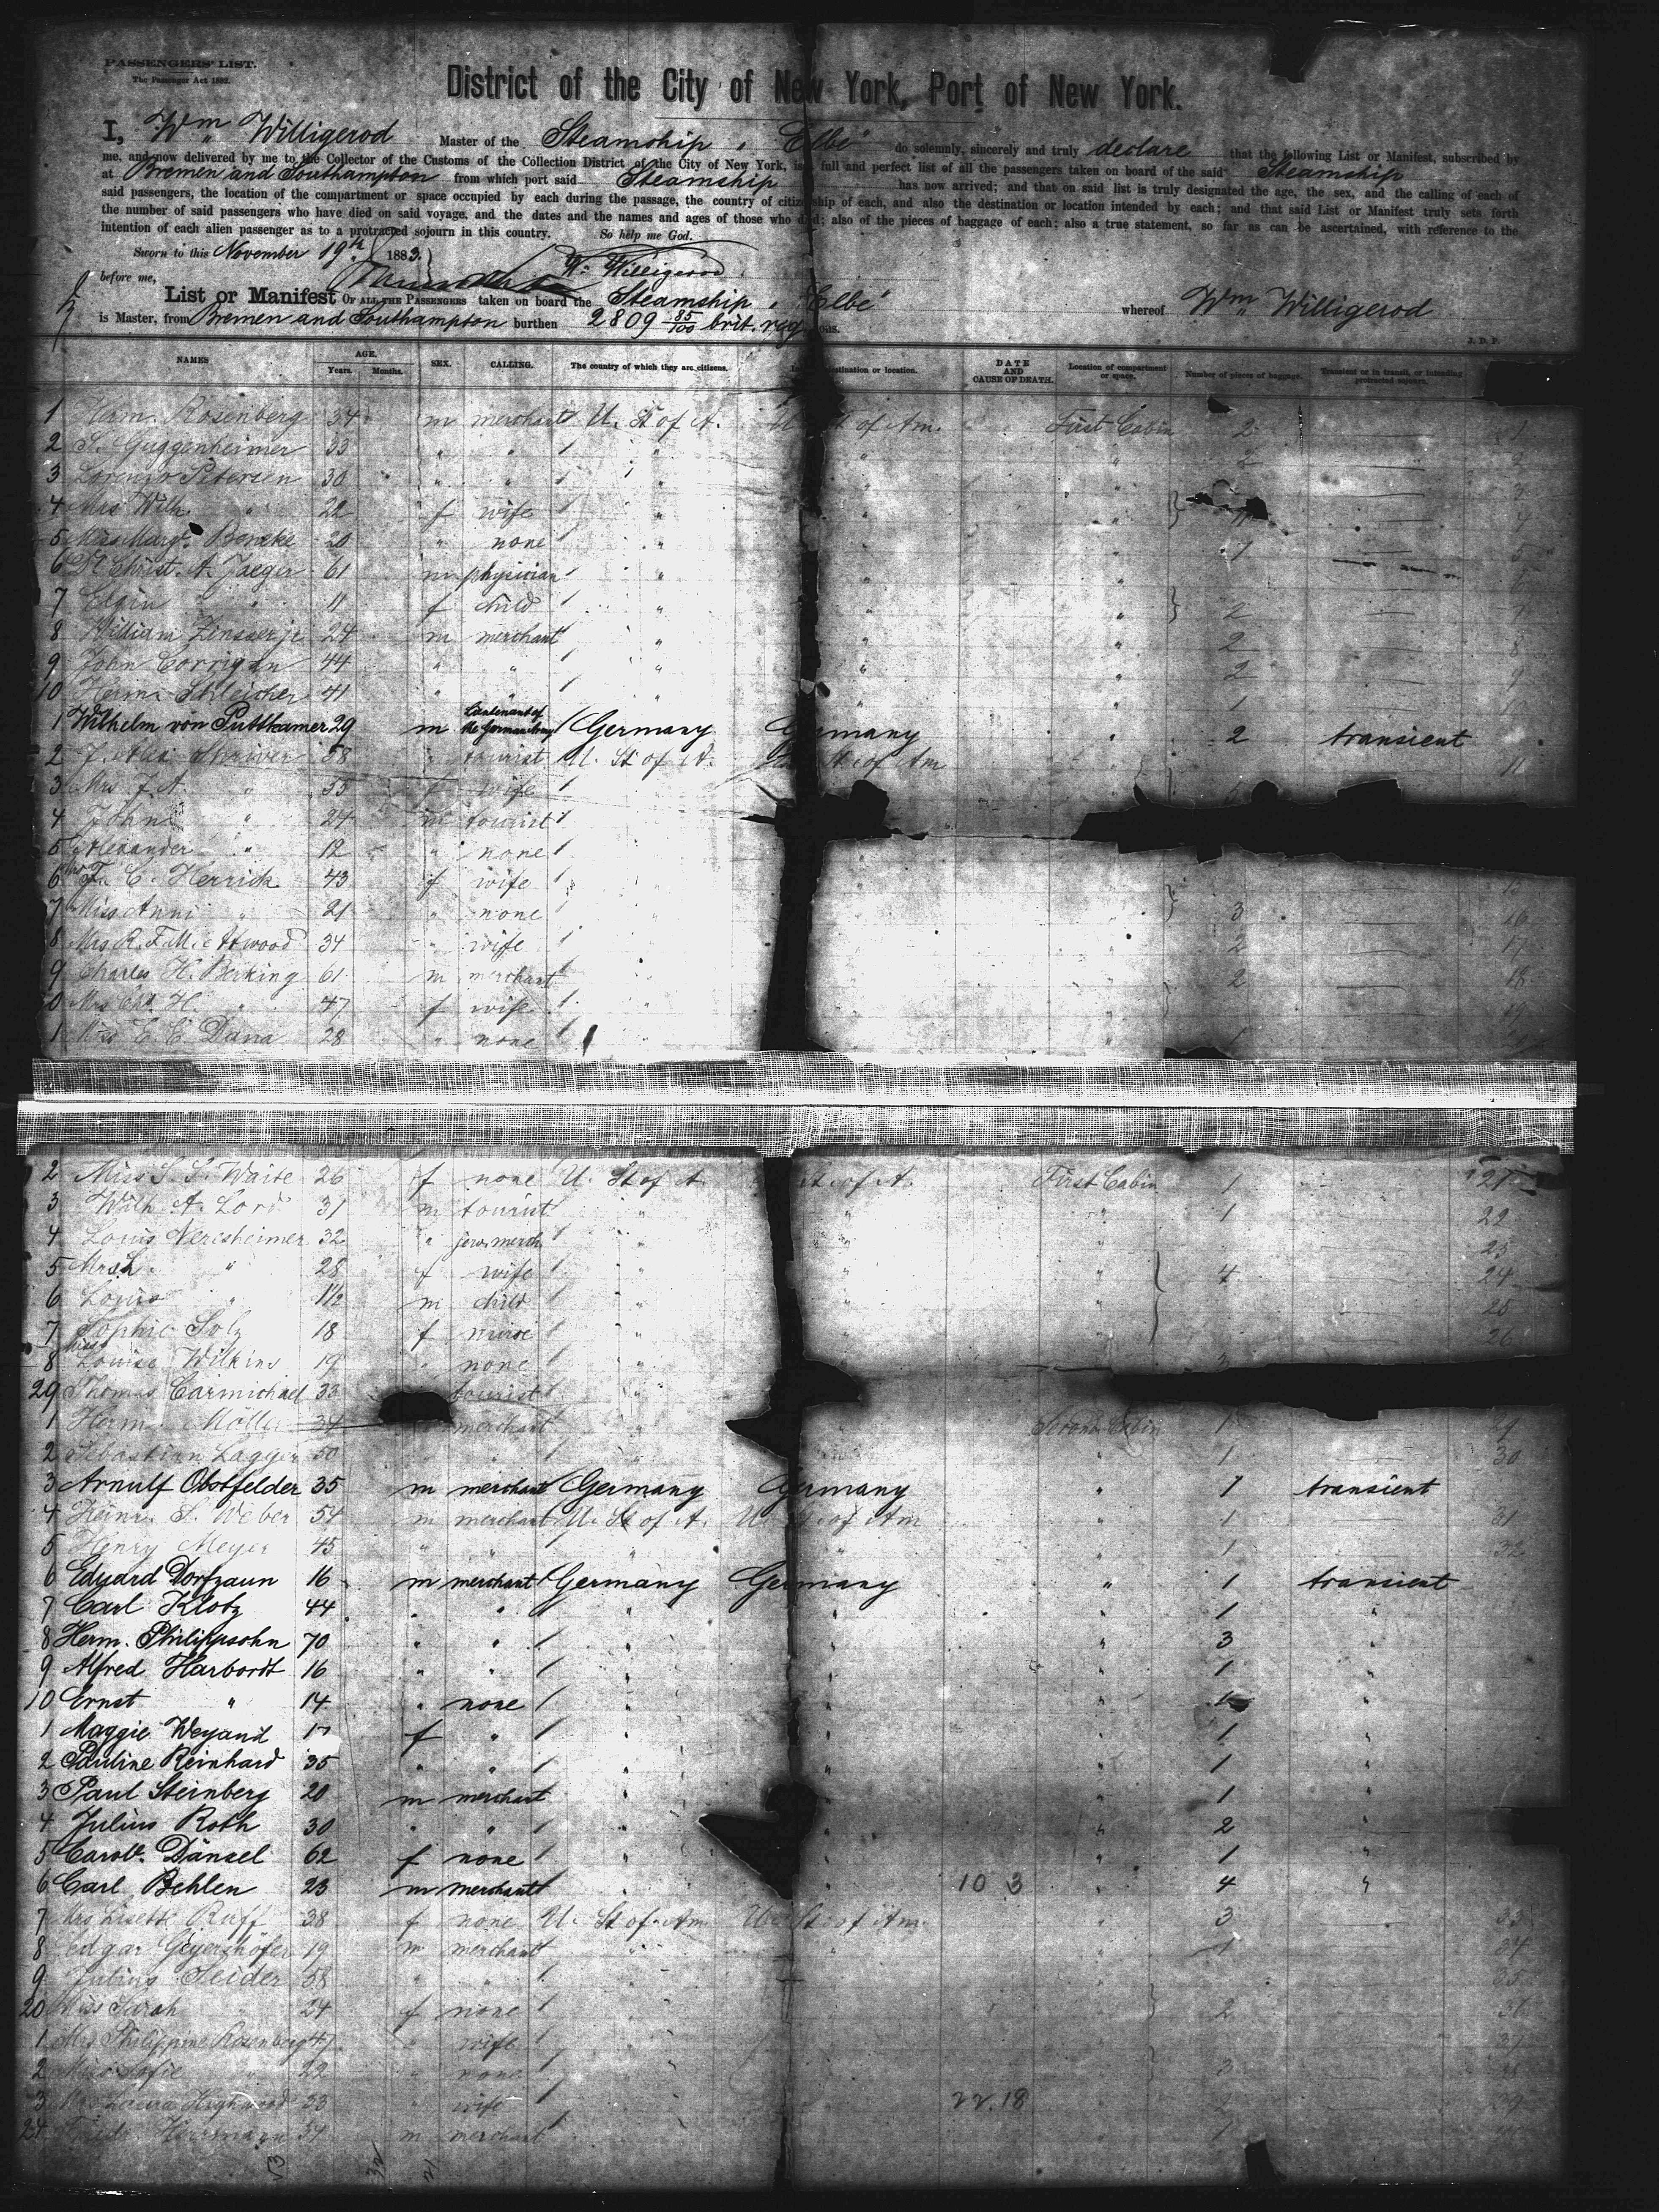 PASSENGERS' LIST.
The Passenger Act 1882.
District of the City of New York, Port of New York.
I, Wm Willigerod Master of the Steamship "Elbe" do solemnly, sincerely and truly declare that the following List or Manifest, subscribed by
me, and now delivered by me to the Collector of the Customs of the Collection District of the City of New York, is a full and perfect list of all the passengers taken on board of the said Steamship
at Bremen and Southampton from which port said Steamship has now arrived; and that on said list is truly designated the age, the sex, and the calling of each of
said passengers, the location of the compartment or space occupied by each during the passage, the country of citizenship of each, and also the destination or location intended by each; and that said List or Manifest truly sets forth
the number of said passengers who have died on said voyage, and the dates and the names and ages of those who died; also of the pieces of baggage of each; also a true statement, so far as can be ascertained, with reference to the
intention of each alien passenger as to a protracted sojourn in this country. So help me God.
Sworn to this November 19th 1883.
W. Willigerod
before me,
List or Manifest OF ALL THE PASSENGERS taken on board the Steamship "Elbe" whereof Wm Willigerod
is Master, from Bremen and Southampton burthen 2809 85/100 brit. reg. tons.
J. D. P.
NAMES AGE. Years. Months. SEX. CALLING. The country of which they are citizens. destination or location. DATE AND CAUSE OF DEATH. Location of compartment or space. Number of pieces of baggage. Transient or in transit, or intending protracted sojourn.
1 Herm. Rosenberg 34 m merchant U. St of A. U St of Am. First Cabin 2 1
2 S. Guggenheimer 33 " " " " " 2 2
3 Lorenzo Petersen 30 " " " " " 3
4 Mrs Wilh. " 22 f wife " " " 4
5 Miss Marg. Beneke 20 " none " " " 1 5
6 Dr Christ. A. Jaeger 61 m physician " " " 6
7 Elgin " 11 f child " " " 2 7
8 William Zinsser jr 24 m merchant " " " 2 8
9 John Corrigan 44 " " " " " 2 9
10 Herm. Schleicher 41 " " " " " 1 10
1 Wilhelm von Puttkamer 29 m Lieutenant of the German Army Germany Germany " 2 transient
2 J. Alex. 58 " tourist U. St of A. St of Am " 11
3 Mrs. J. A. " 55 f wife
4 John " 24 m tourist
5 Alexander " 12 " none
6 Mrs F. C. Herrick 43 f wife 15
7 Miss Anni " 21 " none 3 16
8 Mrs R. F. Mc Attwood 34 " wife 2 17
9 Charles H. Berking 61 m merchant 2 18
0 Mrs Chs. H. " 47 f wife 19
1 Miss E. C. Dana 28 " none 1
2 Miss S. S. Waite 26 f none U. St of A. St. of A. First Cabin 1 21
3 Wilh. A. Lord 31 m tourist " " " 1 22
4 Louis Neresheimer 32 " jew. merch. " " " 23
5 Mrs L. " 28 f wife " " " 4 24
6 Louis " 1½ m child " " " 25
7 Sophie Solz 18 f nurse " " " 26
8 Miss Louise Wilkins 19 " none "
29 Thomas Carmichael 33 tourist "
1 Herm. Möller 34 merchant " " Second Cabin 1 29
2 Sebastian Lagger 50 " " " " " 1 30
3 Arnulf Obstfelder 35 m merchant Germany Germany " 1 transient
4 Heinr. S. Weber 54 m merchant U. St of A. U. St. of Am " 1 31
5 Henry Meyer 45 " " " " " 1 32
6 Eduard Dorfzaun 16 m merchant Germany Germany " 1 transient
7 Carl Klotz 44 " " " " " 1 "
8 Herm. Philippsohn 70 " " " " " 3 "
9 Alfred Harbordt 16 " " " " " 1 "
10 Ernst " 14 " none " " " 1 "
1 Maggie Weyand 17 f " " " " 1 "
2 Pauline Reinhard 35 " " " " " 1 "
3 Paul Steinberg 20 m merchant " " " 1 "
4 Julius Roth 30 " " " " " 2 "
5 Carol. Dänzel 62 f none " " " 1 "
6 Carl Behlen 23 m merchant " " 10 3 " 4 "
7 Mrs Lisette Ruff 38 f none U. St of Am U. St of Am. " 3 33
8 Edgar Geyershöfer 19 m merchant " " " 1 34
9 Julius Seider 58 " " " " " 35
20 Miss Sarah " 24 f none " 2 36
1 Mrs Philippine Rosenberg 47 " wife 37
2 Miss Sofie " 22 " none 3 38
3 Mrs Laura Highwood 33 " wife 22.18 2 39
24 Friedr. Herrmann 34 m merchant 1
53 32 21